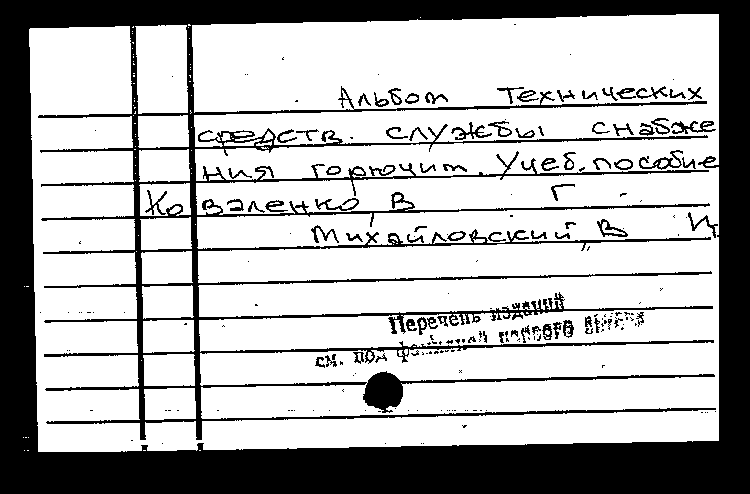 Альбом технических
средств. службы снабже
ния горючим. Учеб. пособие
Коваленко, В Г
Михайловский, В И
Перечень изданий
см. под фамилией первого автора